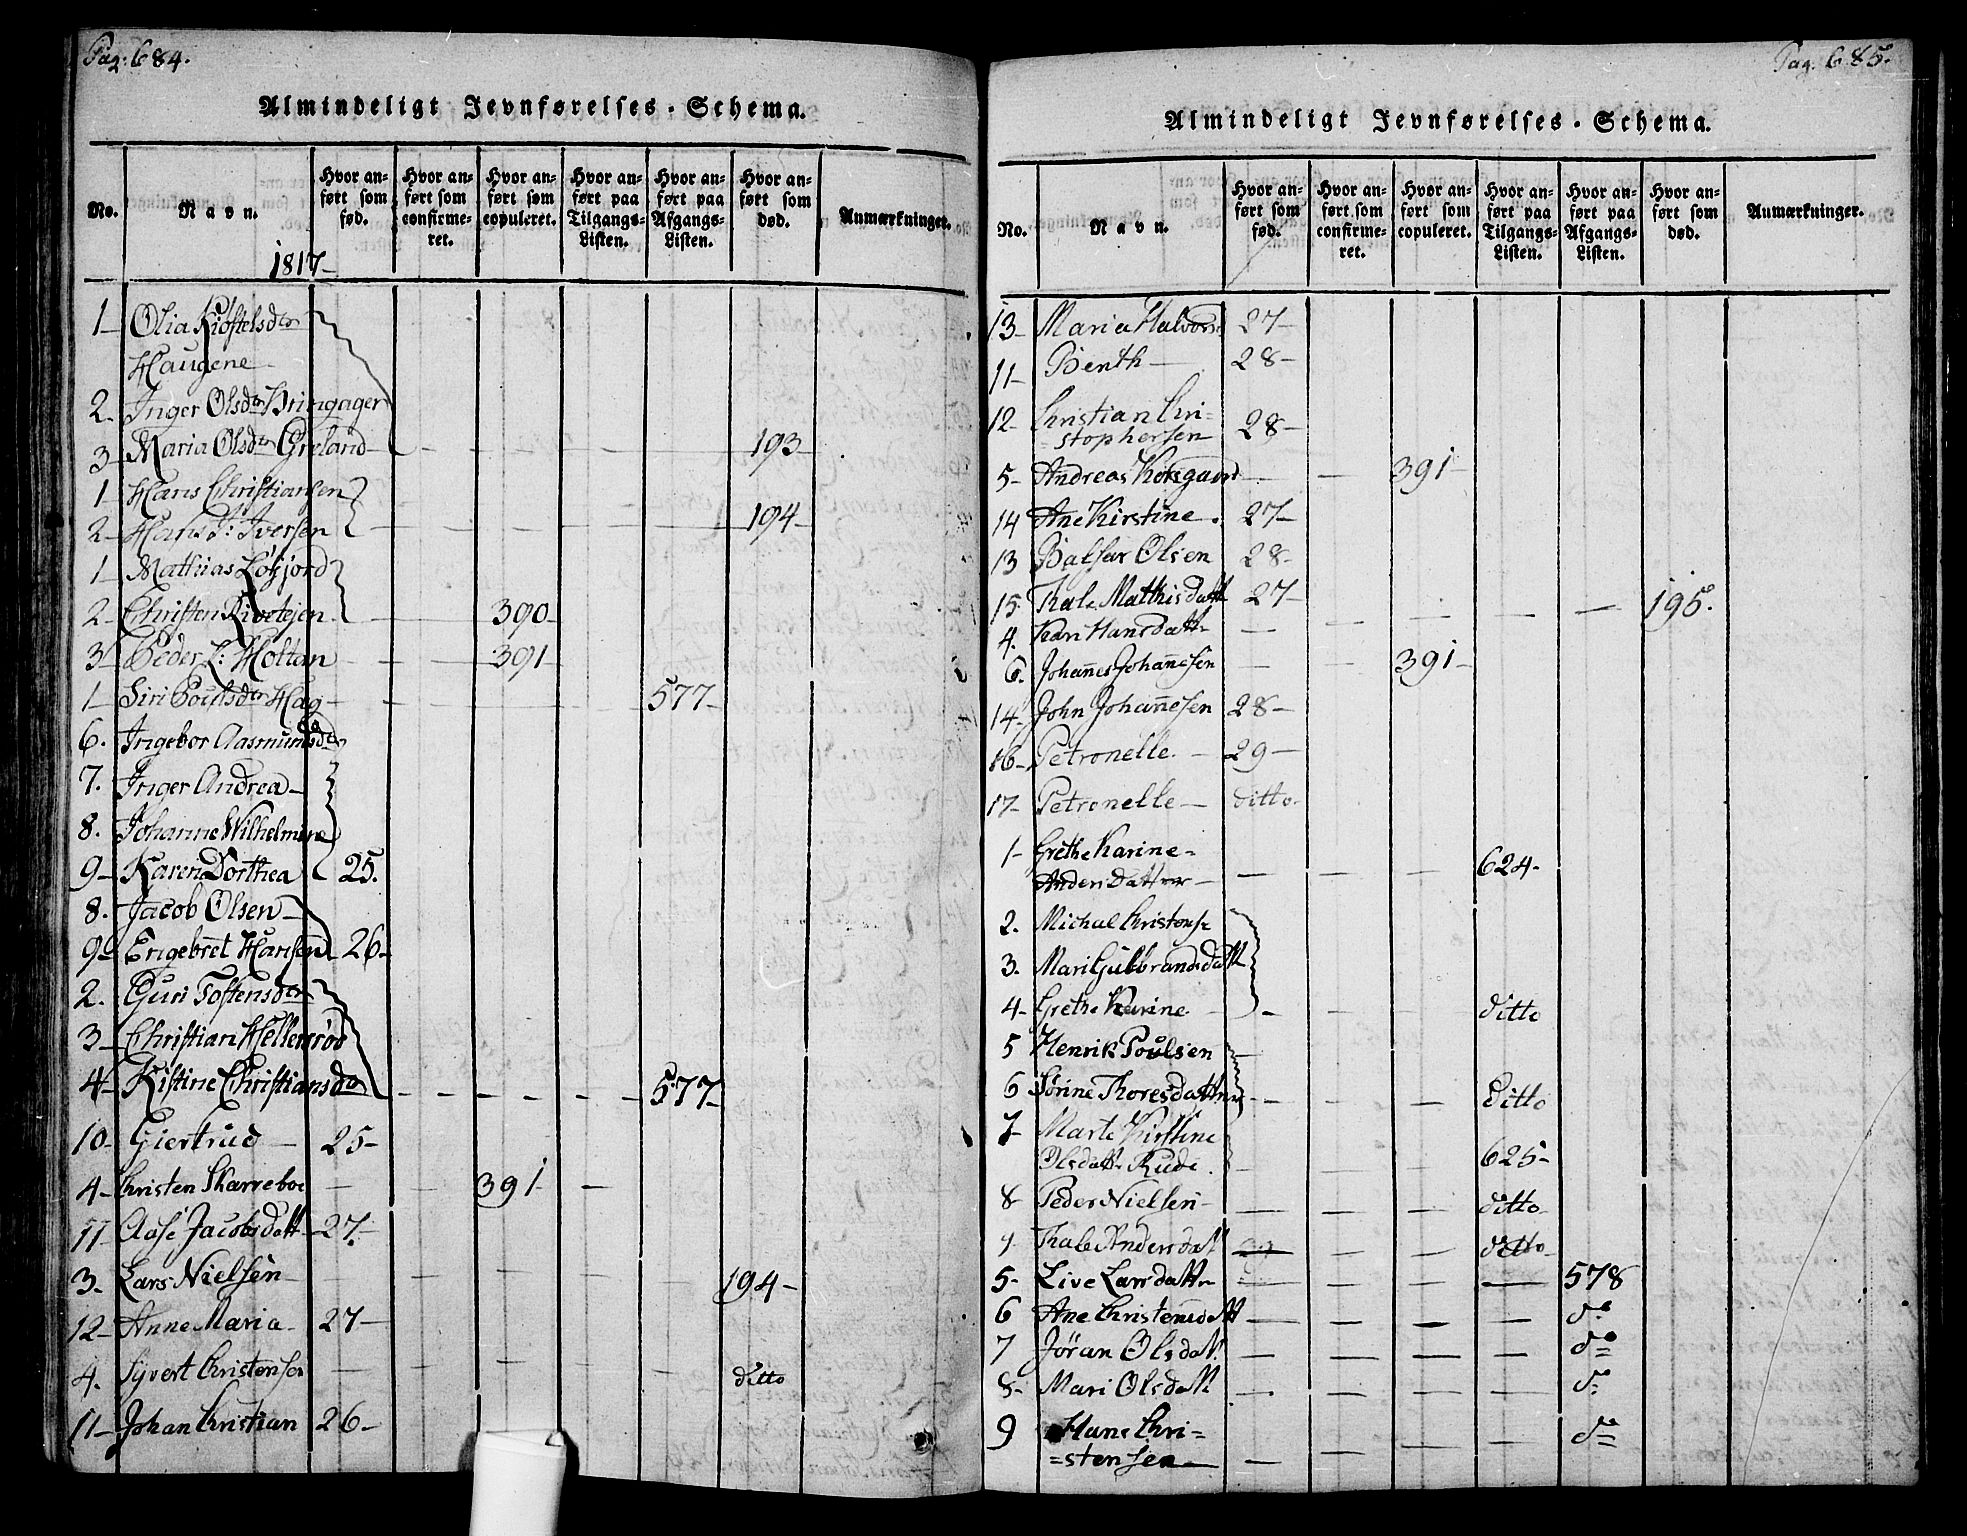 Pag: 684.
Almindeligt Jevnførelses-Schema.
No. Navn. Hvor anført som fød. Hvor anført som confirmeret. Hvor anført som copuleret. Hvor anført paa Tilgangs-Listen. Hvor anført paa Afgangs-Listen. Hvor anført som død. Anmærkninger.
1817-
1- Olia Kiøstelsdtr
Haugene-
2. Inger Olsdtr Kringager
3- Maria Olsdtr Greland - - - - - 193
1- Hans Christiansen
2- Hans I: Iversen - - - - - 194-
1- Mathias Løfjord
2- Christen Rivetejen. - - 390-
3- Peder L: Holtan - - 391-
1- Siri Poulsdtr Hag - - - - 577-
6. Ingebor Aasmundsdtr
7. Inger Andrea-
8. Johanne Wilhelmine
9- Karen Dorthea 25.
8. Jacob Olsen-
9- Engebret Hansen 26-
2. Guri Toftensdtr
3- Christian Hellersrød
4- Kistine Christiansdtr - - - - 577-
10- Giertrud - 25-
4- Christen Skarreboe - - 391- -
11 Aase Jacobsdatt 27-
3. Lars Nielsen - - - - - 194-
12- Anne Maria- 27-
4. Syvert Christensen - - - - - ditto
11- Johan Christian 26-
Pag. 685.
Almindeligt Jevnførelses-Schema.
No. Navn. Hvor anført som fød. Hvor anført som confirmeret. Hvor anført som copuleret. Hvor anført paa Tilgangs-Listen. Hvor anført paa Afgangs-Listen. Hvor anført som død. Anmærkninger.
13- Maria Halvors 27-
11- Benth - 28-
12- Christian Chri=
=stophersen 28-
5- Andreas Korsgaard - - 391-
14 Ane Kirstine. 27-
13 Balsar Olsen 28-
15. Thale Mathisdatt 27- - - - - 195.
4. Kari Hansdattr -
6. Johanes Johanesen - - 391-
14- John Johanesen 28-
16- Petronelle. - 29-
17- Petronelle - ditto-
1- Grethe Karine-
Andersdatter - - - - 624-
2. Michal Christens
3. Mari Gulbrandsdatt
4- Grethe Karine - - - - ditto
5 Henrik Poulsen
6 Sørine Thoresdatter - - - ditto
7- Marte Kirstine
Olsdatt Rude. - - - 625-
8- Peder Nielsen - - - - ditto-
Thale Andersdatt - - - ditto-
5- Live Larsdattr - - - - 578
6 Ane Christensdatt - - - - do
7 Jøran Olsdatt - - - - do
8- Mari Olsdatt - - - - do
9 Hans Chri=
=stensen - - - - do